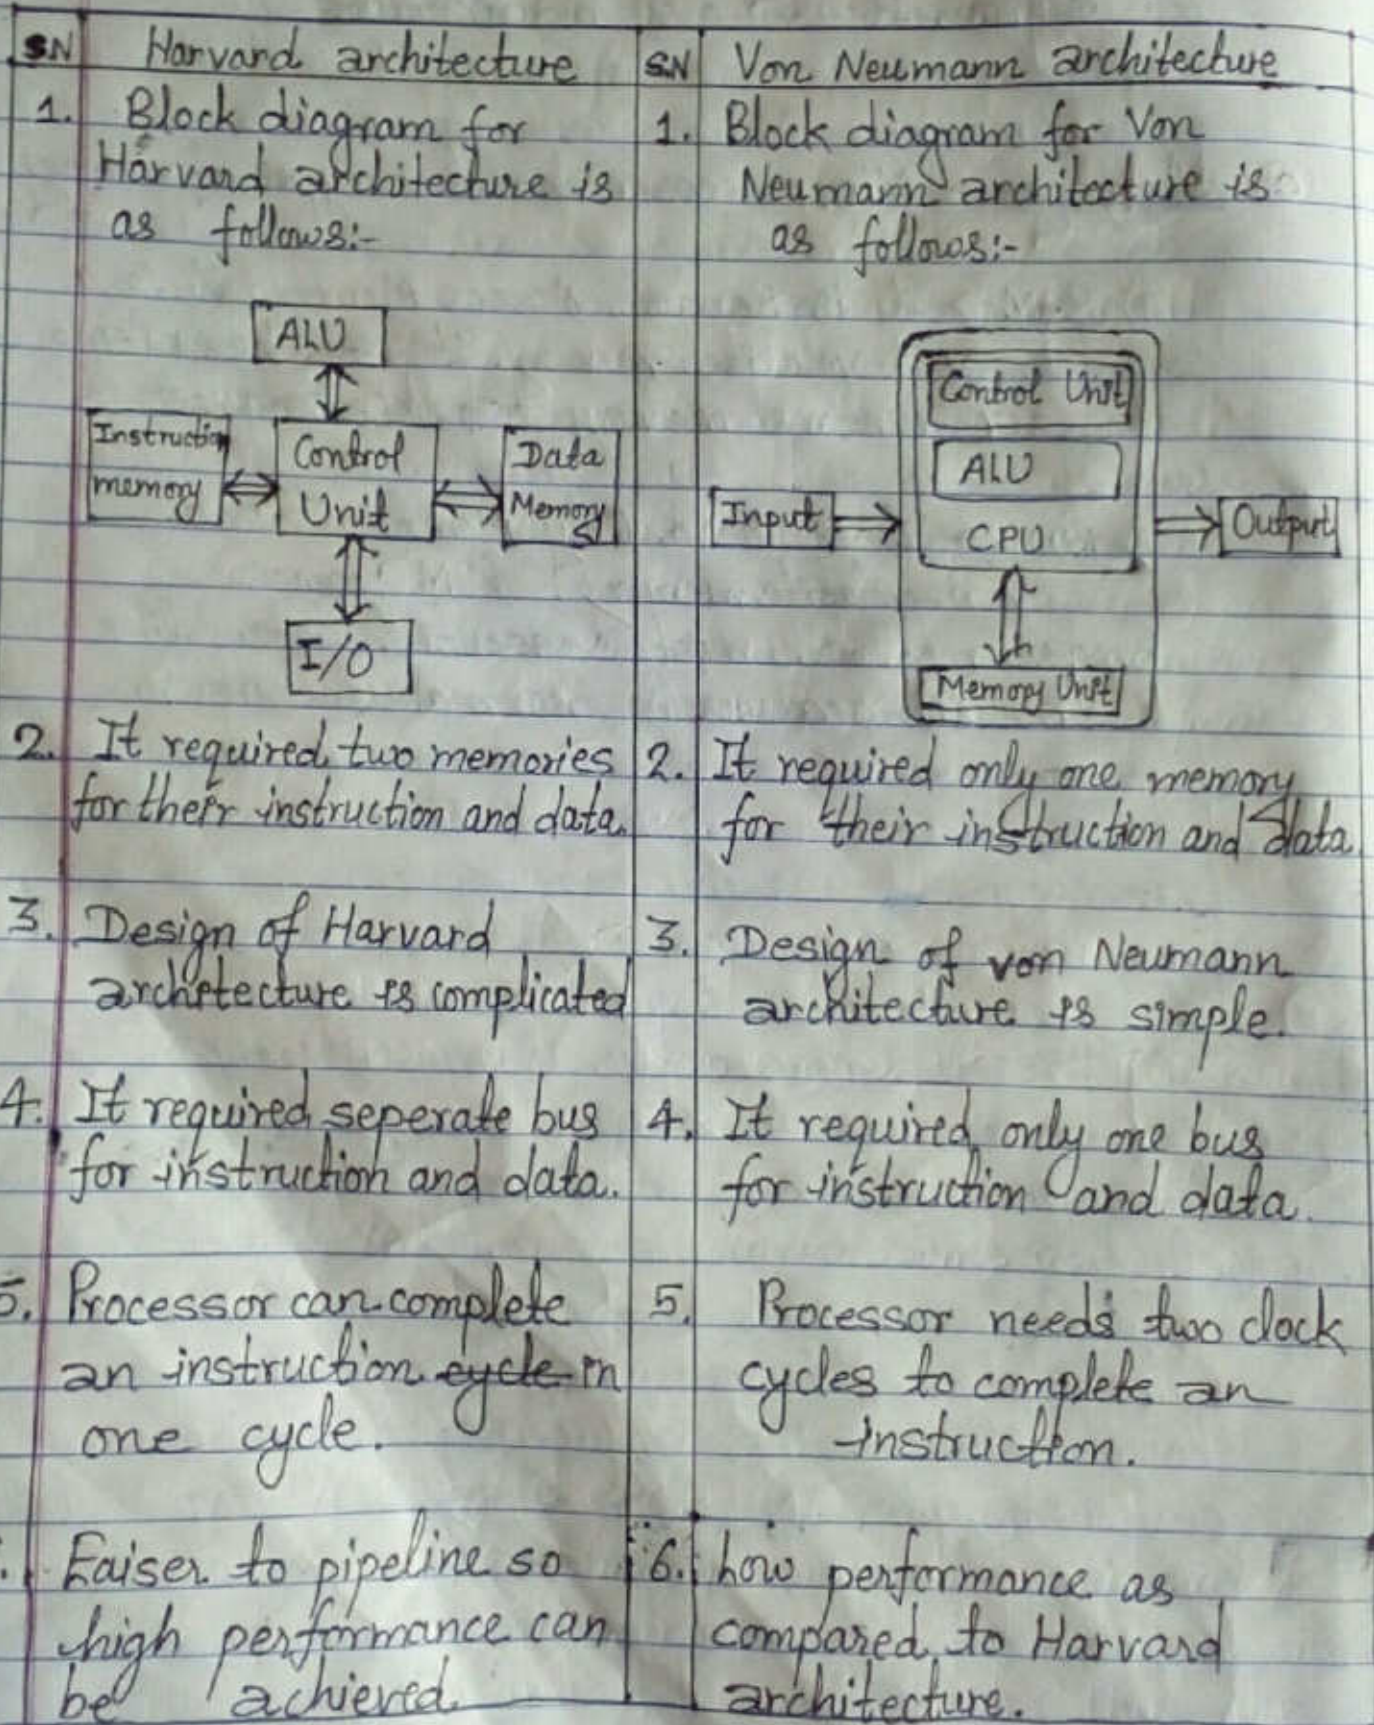 SN Harvard architecture SN Von Neumann architecture
1. Block diagram for
Harvard architecture is
as follows:-
ALU
Instruction
memory
Control
Unit
Data
Memory
I/O
1. Block diagram for Von
Neumann architecture is
as follows:-
Control Unit
ALU
CPU
Input
Output
Memory Unit
2. It required two memories
for their instruction and data.
2. It required only one memory
for their instruction and data
3. Design of Harvard
architecture is complicated
3. Design of von Neumann
architecture is simple.
4. It required seperate bus
for instruction and data.
4. It required only one bus
for instruction and data.
5. Processor can complete
an instruction cycle in
one cycle.
5. Processor needs two clock
cycles to complete an
instruction.
Eaiser to pipeline so
high performance can
be achieved.
6. Low performance as
compared to Harvard
architecture.